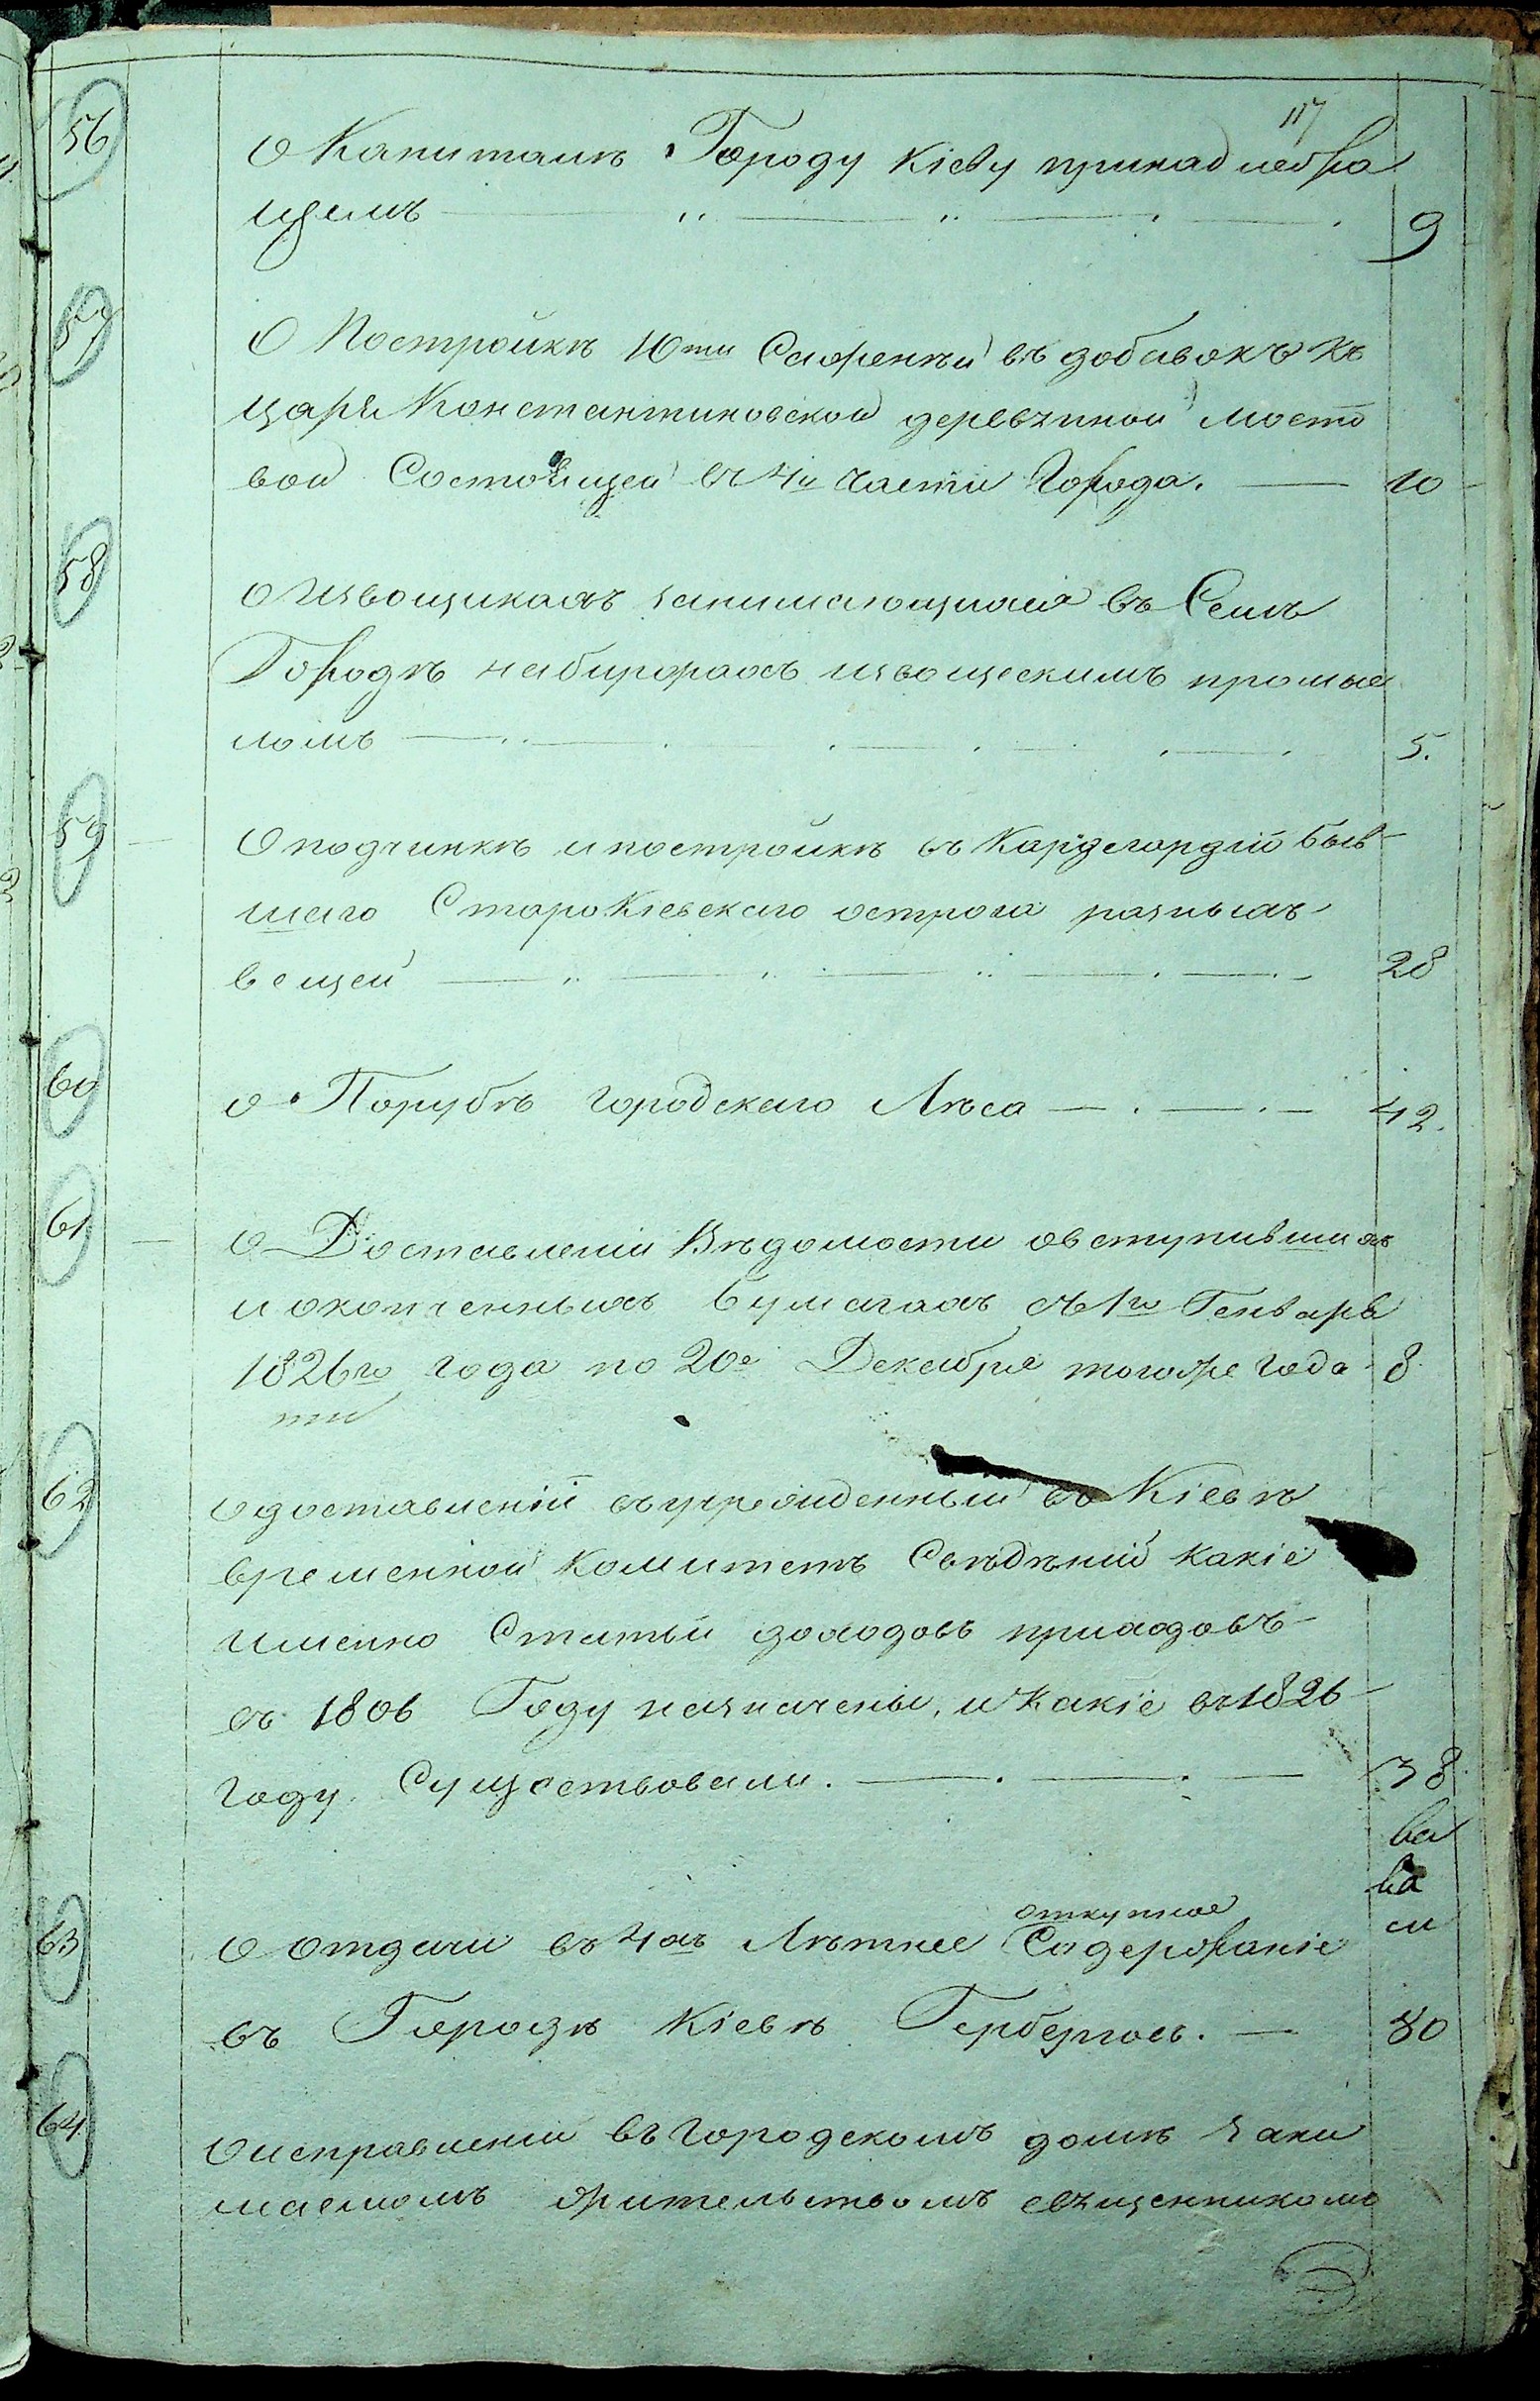 117
56 О Капиталѣ Городу Кіеву принадлежа
щемъ 9
57 О Постройкѣ 10ти Саженѣй въ добавокъ къ
царя Константиновской деревянной мосто
вой Состоящей въ 4й части Города. 10
58 О извощикахъ занимающихся въ Семъ
Городѣ на биржахъ извощескимъ промыс
ломъ 5.
59 О подчинкѣ и постройкѣ въ Кардегардіи быв
шаго СтароКіевскаго острога разныхъ
вещей 28
60 О Порубѣ городскаго Лѣса 42.
61 О Доставленіи Вѣдомости о вступившихъ
и оконченныхъ бумагахъ съ 1го Генваря
1826го года по 20е Декабря тогоже года 8
62 О доставленіи въ учрежденный въ Кіевѣ
временной Комитетъ Свѣдѣній какіе
именно Статьи доходовъ приходовъ
въ 1806 Году назначены, и какіе въ 1826
году Существовали. 38
ва
ва
си
откупное
63 О отдачи въ 4хъ Лѣтнее Содержаніе
въ Городѣ Кіевѣ Герберговъ. 80
64 О исправленіи въ городскомъ домѣ зани
маемомъ жительствомъ священникомъ